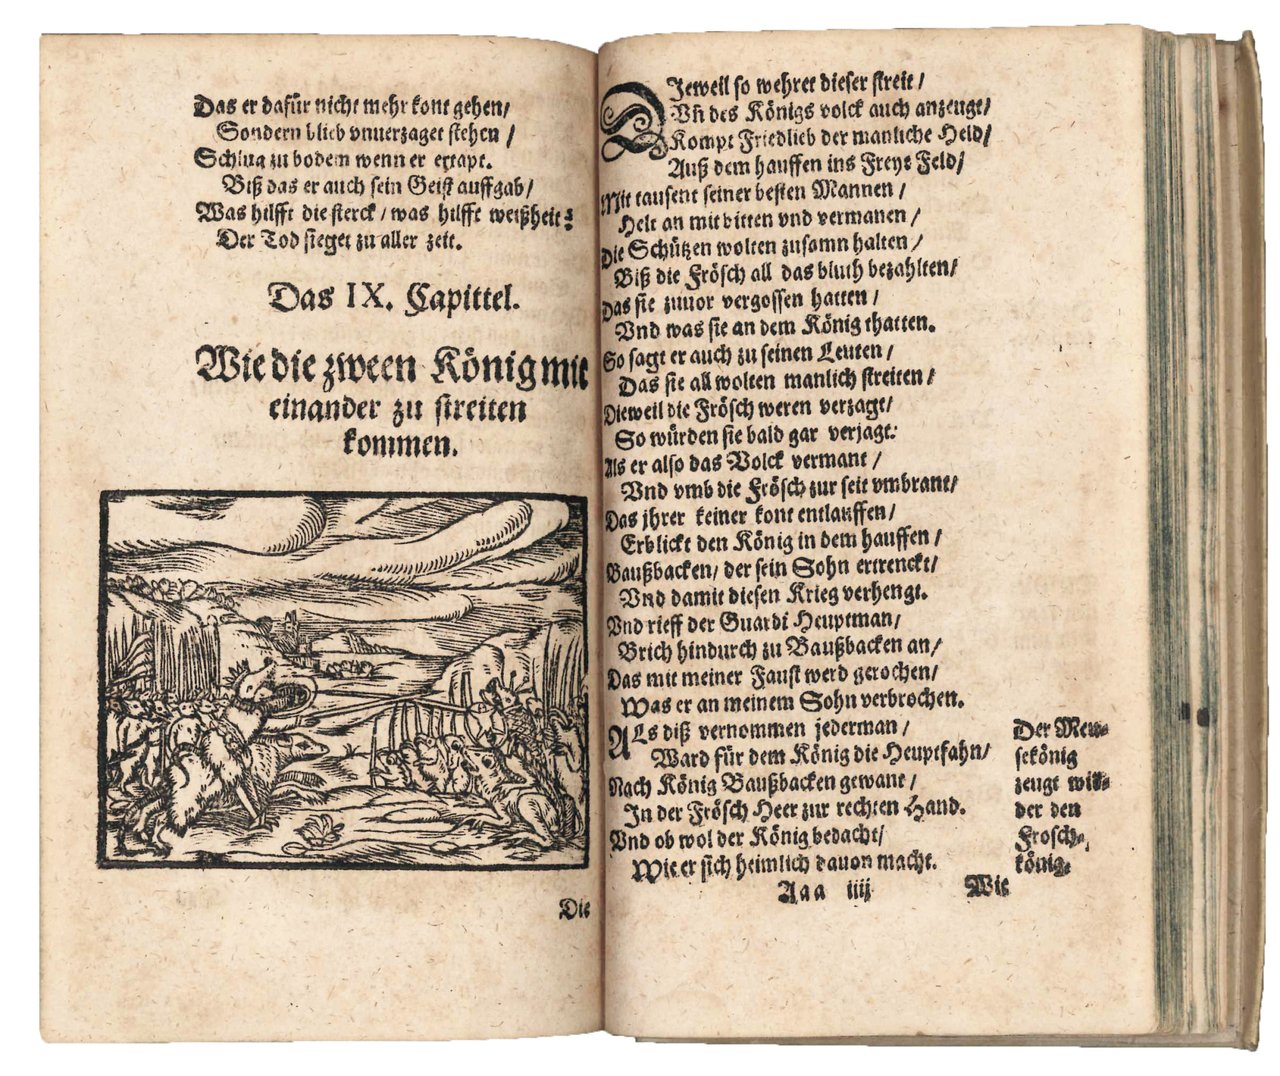 Das er dafür nicht mehr kont gehen/
Sondern blieb vnuerzaget stehen /
Schlug zu bodem wenn er ertapt.
Biß das er auch sein Geist auffgab/
Was hilfft die sterck / was hilfft weißheit:
Der Tod sieget zu aller zeit.
Das IX. Capittel.
Wie die zween König mit
einander zu streiten
kommen.
Die
DJeweil so wehret dieser streit /
Vñ des Königs volck auch anzeugt/
Kompt Friedlieb der manliche Held/
Auß dem hauffen ins Freye Feld/
Mit tausent seiner besten Mannen /
Helt an mit bitten vnd vermanen /
Die Schützen wolten zusamn halten /
Biß die Frösch all das bluth bezahlten/
Das sie zuuor vergossen hatten /
Vnd was sie an dem König thatten.
So sagt er auch zu seinen Leuten /
Das sie all wolten manlich streiten /
Dieweil die Frösch weren verzagt/
So würden sie bald gar verjagt:
Als er also das Volck vermant /
Vnd vmb die Frösch zur seit vmbrant/
Das jhrer keiner kont entlauffen/
Erblickt den König in dem hauffen /
Baußbacken/ der sein Sohn ertrenckt/
Vnd damit diesen Krieg verhengt.
Vnd rieff der Guardi Heuptman/
Brich hindurch zu Baußbacken an/
Das mit meiner Faust werd gerochen/
Was er an meinem Sohn verbrochen.
ALs diß vernommen jederman /
Ward für dem König die Heuptfahn/
Nach König Baußbacken gewant /
Jn der Frösch Heer zur rechten Hand.
Vnd ob wol der König bedacht/
Wie er sich heimlich dauon macht.
Der Meu-
sekönig
zeugt wid-
der den
Frosch-
könig.
Aaa iiij
Wie